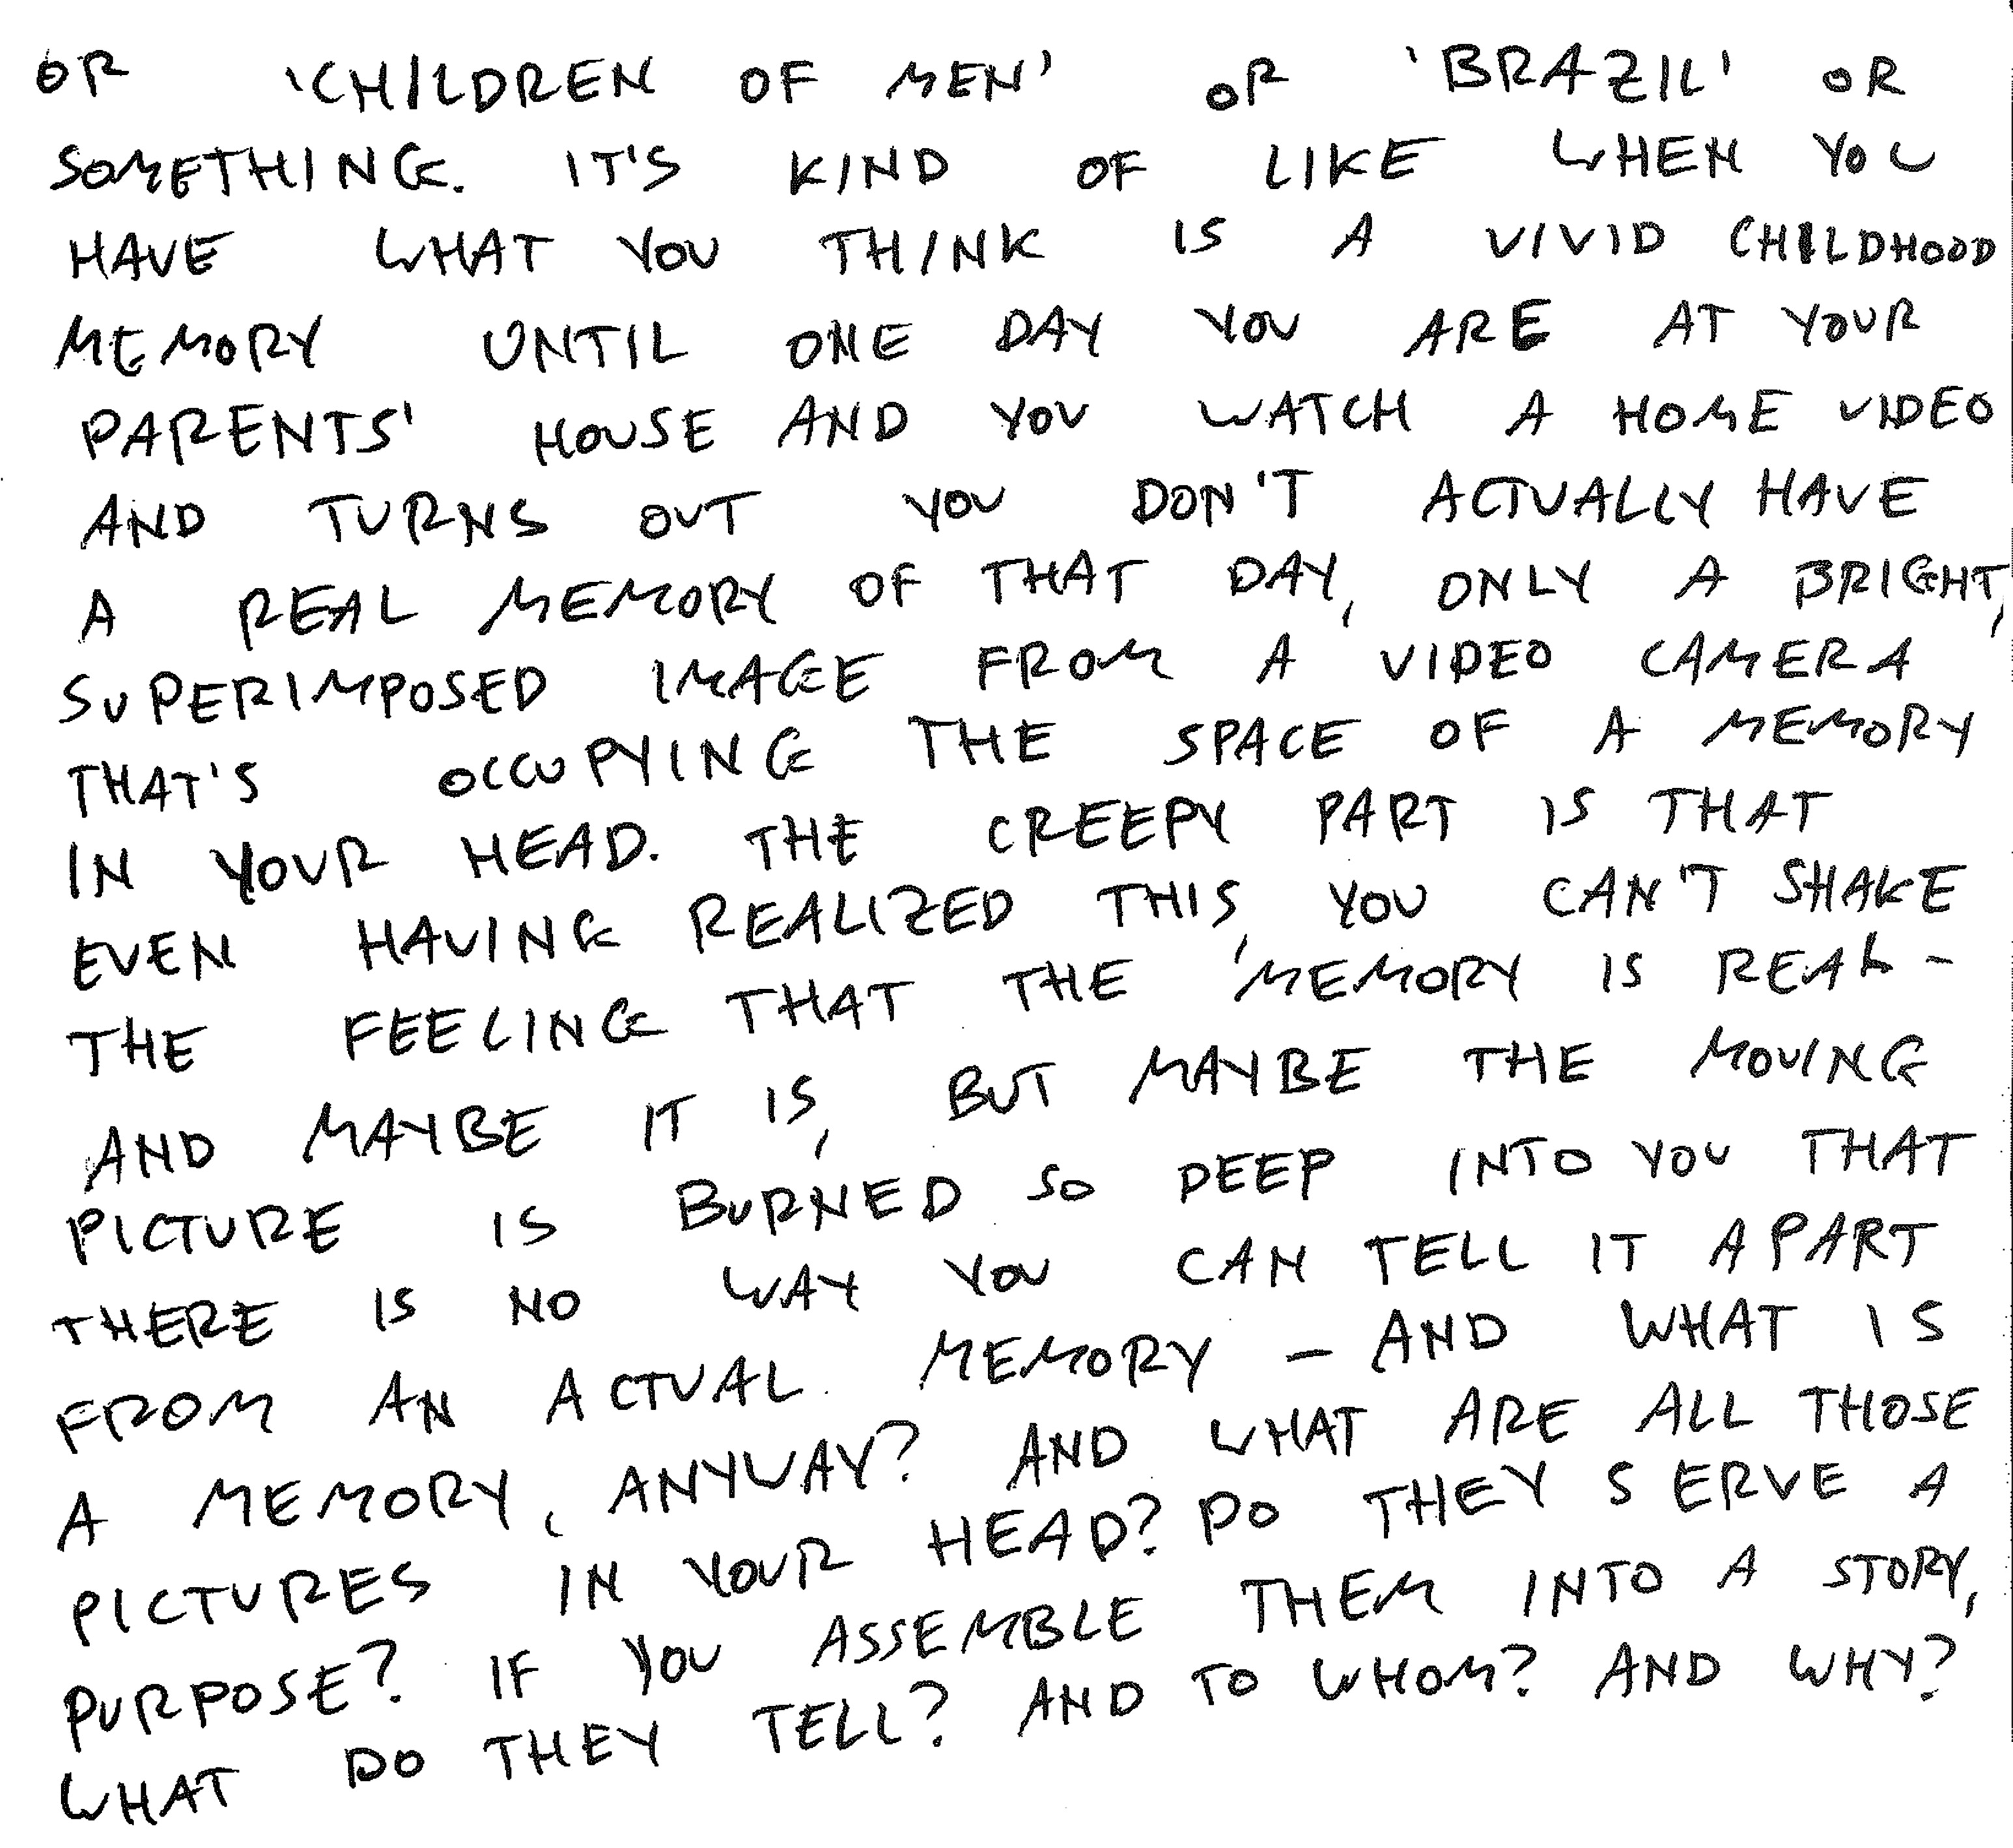 OR 'CHILDREN OF MEN' OR 'BRAZIL' OR
SOMETHING. IT'S KIND OF LIKE WHEN YOU
HAVE WHAT YOU THINK IS A VIVID CHILDHOOD
MEMORY UNTIL ONE DAY YOU ARE AT YOUR
PARENTS' HOUSE AND YOU WATCH A HOME VIDEO
AND TURNS OUT YOU DON'T ACTUALLY HAVE
A REAL MEMORY OF THAT DAY, ONLY A BRIGHT,
SUPERIMPOSED IMAGE FROM A VIDEO CAMERA
THAT'S OCCUPYING THE SPACE OF A MEMORY
IN YOUR HEAD. THE CREEPY PART IS THAT
EVEN HAVING REALIZED THIS, YOU CAN'T SHAKE
THE FEELING THAT THE 'MEMORY IS REAL -
AND MAYBE IT IS, BUT MAYBE THE MOVING
PICTURE IS BURNED SO DEEP INTO YOU THAT
THERE IS NO WAY YOU CAN TELL IT APART
FROM AN ACTUAL MEMORY - AND WHAT IS
A MEMORY, ANYWAY? AND WHAT ARE ALL THOSE
PICTURES IN YOUR HEAD? DO THEY SERVE A
PURPOSE? IF YOU ASSEMBLE THEM INTO A STORY,
WHAT DO THEY TELL? AND TO WHOM? AND WHY?